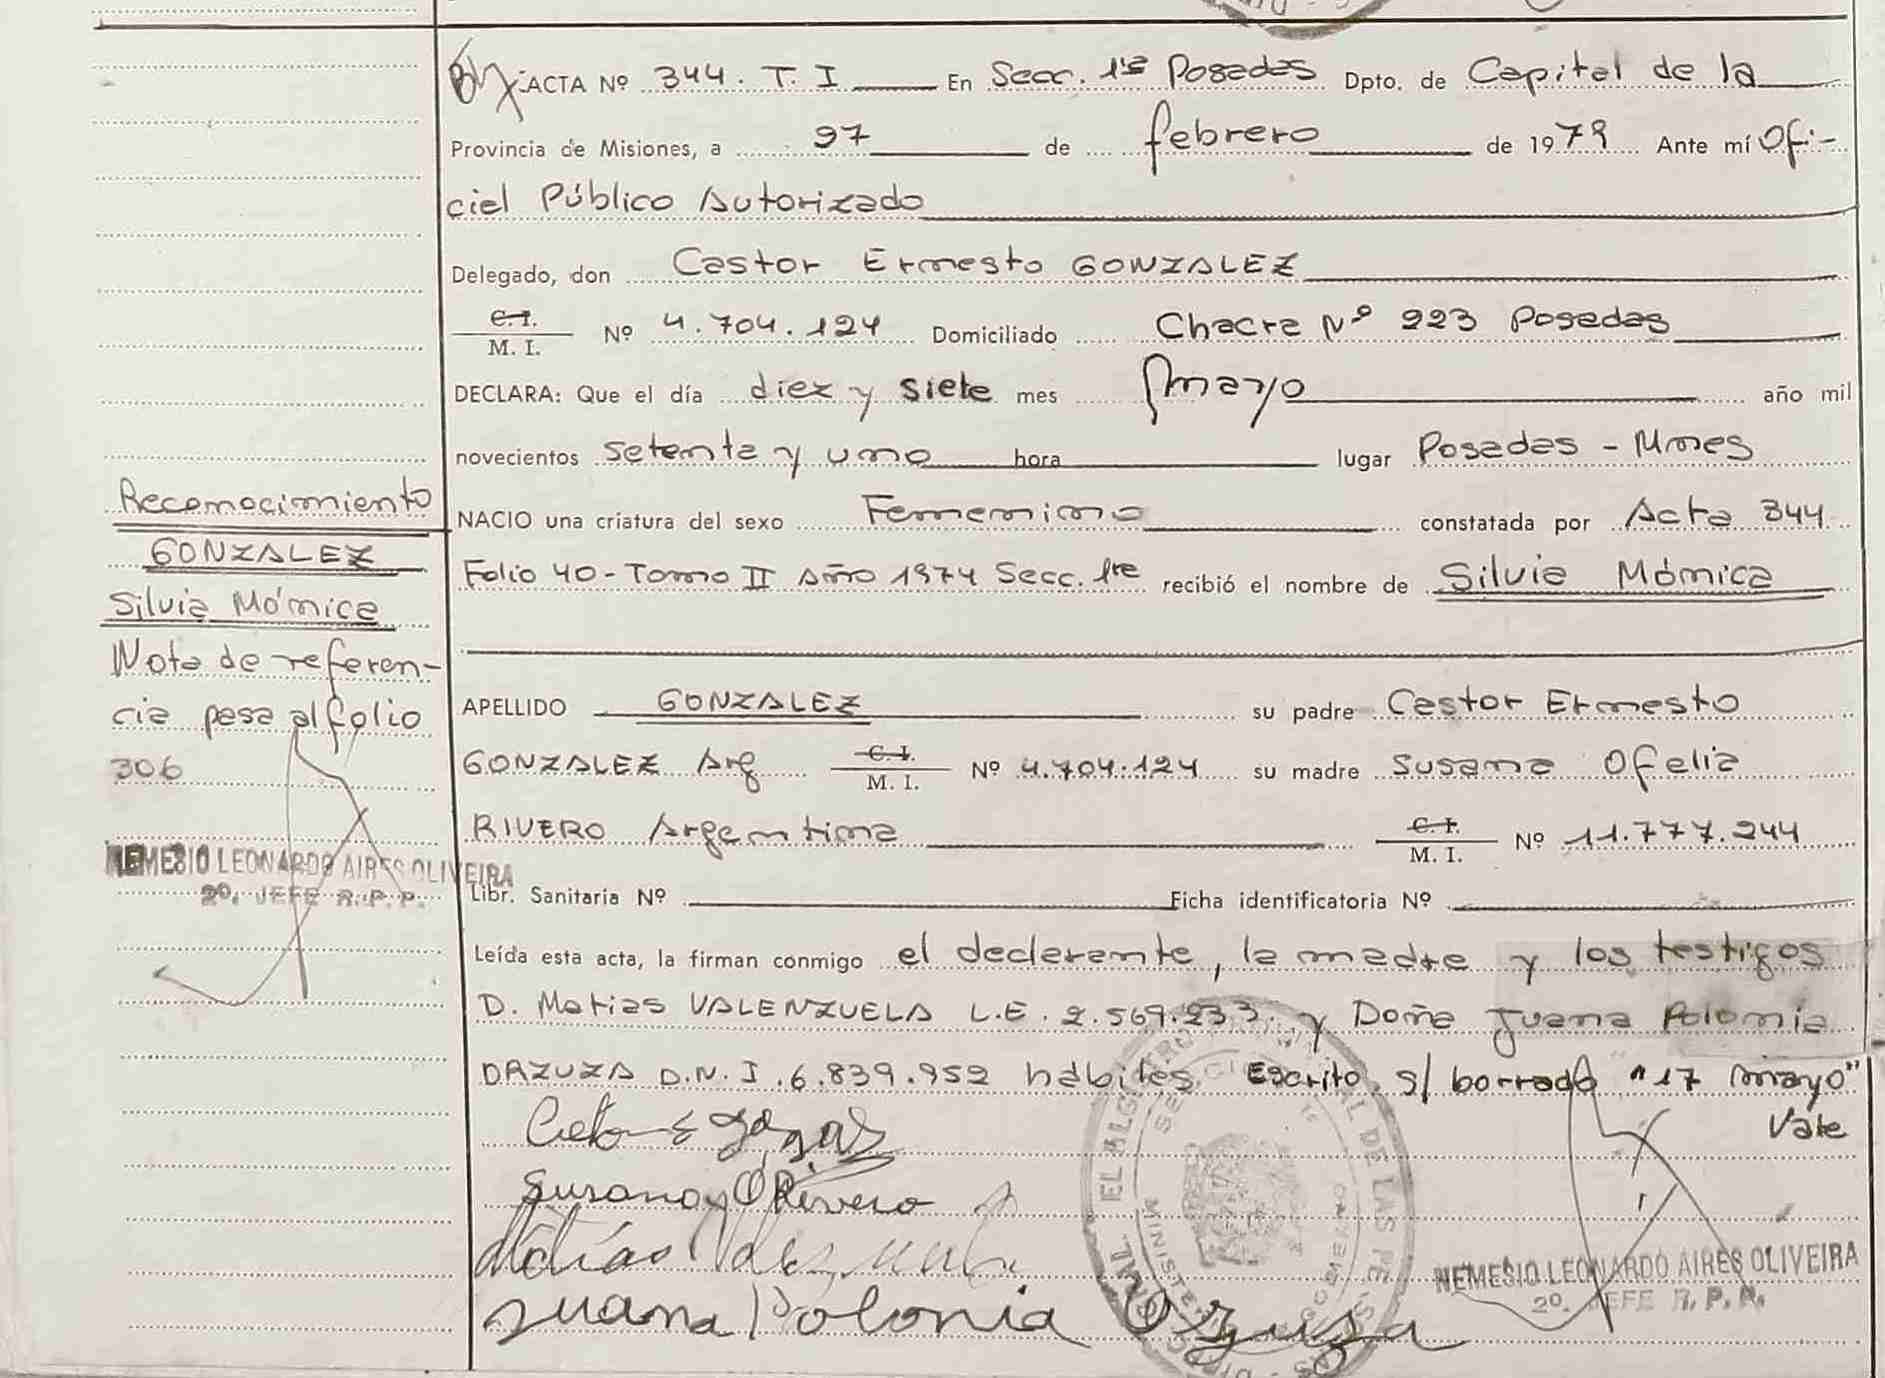 Reconocimiento
GONZALEZ
Silvia Mónica
Nota de referen-
cia pasa al folio
306
NEMESIO LEONARDO AIRES OLIVEIRA
2º. JEFE R. P. P.
ACTA Nº 344. T. I En Secc. 1ra Posadas Dpto. de Capital de la
Provincia de Misiones, a 27 de febrero de 1979 Ante mí Ofi-
cial Público Autorizado
Delegado, don Castor Ernesto GONZALEZ
C. I.
M. I. Nº 4.704.124 Domiciliado Chacra Nº 223 Posadas
DECLARA: Que el día diez y siete mes mayo año mil
novecientos setenta y uno hora lugar Posadas - Mnes
NACIO una criatura del sexo Femenino constatada por Acta 344
Folio 40 - Tomo II Año 1974 Secc. 1ra recibió el nombre de Silvia Mónica
APELLIDO GONZALEZ su padre Castor Ernesto
GONZALEZ Arg C. I. M. I. Nº 4.704.124 su madre Susana Ofelia
RIVERO Argentina C. I. M. I. Nº 11.777.244
Libr. Sanitaria Nº Ficha identificatoria Nº
Leída esta acta, la firman conmigo el declarante, la madre y los testigos
D. Matias VALENZUELA L.E. 2.569.233 y Doña Juana Polonia
ORZUZA D.N.I. 6.839.952 hábiles. Escrito s/ borrado "17 mayo"
Vale
Susana O Rivero
Matías Valenzuela
Juana Polonia Orzuza
NEMESIO LEONARDO AIRES OLIVEIRA
2º. JEFE R. P. P.